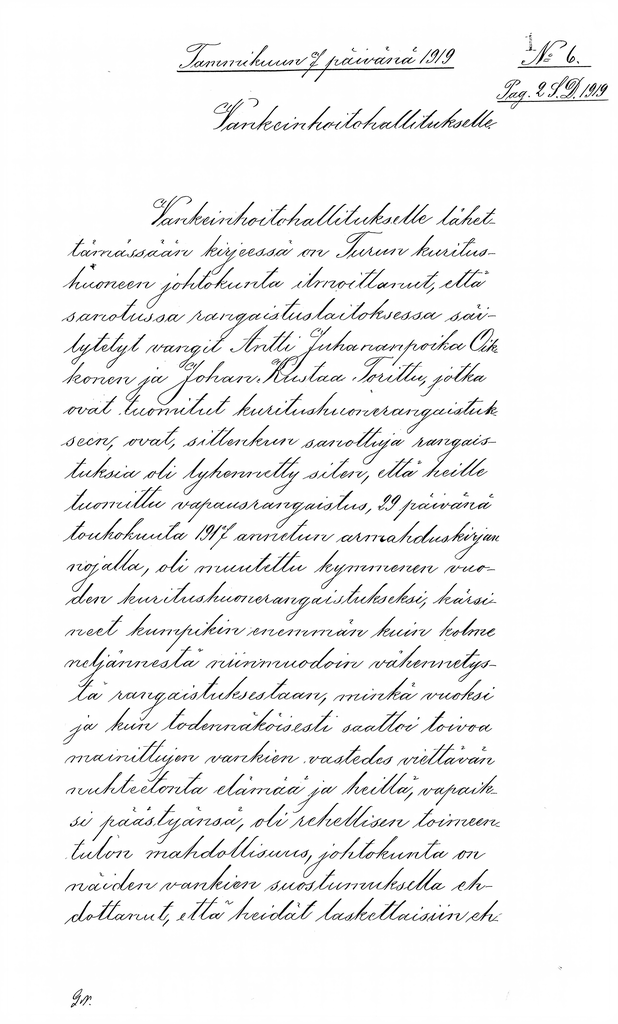 Tammikuun 7 päivänä 1919
1
No 6.
Pag. 2 S.D. 1919
Vankeinhoitohallitukselle.
Vankeinhoitohallitukselle lähet-
tämässään kirjeessä on Turun kuritus-
huoneen johtokunta ilmoittanut, että
sanotussa rangaistuslaitoksessa säi-
lytetyt vangit Antti Juhananpoika Oik-
konen ja Johan Kustaa Torittu, jotka
ovat tuomitut kuritushuonerangaistuk-
seen, ovat, sittenkun sanottuja rangais-
tuksia oli lyhennetty siten, että heille
tuomittu vapausrangaistus, 29 päivänä
toukokuuta 1917 annetun armahduskirjan
nojalla, oli muutettu kymmenen vuo-
den kuritushuonerangaistukseksi, kärsi-
neet kumpikin enemmän kuin kolme
neljännestä niinmuodoin vähennetys-
tä rangaistuksestaan, minkä vuoksi
ja kun todennäköisesti saattoi toivoa
mainittujen vankien vastedes viettävän
nuhteetonta elämää ja heillä, vapaik-
si päästyänsä, oli rehellisen toimeen-
tulon mahdollisuus, johtokunta on
näiden vankien suostumuksella eh-
dottanut, että heidät laskettaisiin eh-